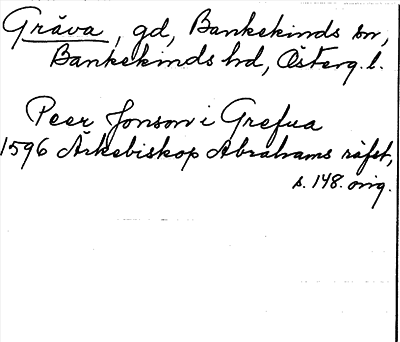 Gråva, gd, Bankekinds sn,
Bankekinds hd, Österg. l.
Peer Jonson i Grefua
1596 Ärkebiskop Abrahams räfst,
s. 148. orig.